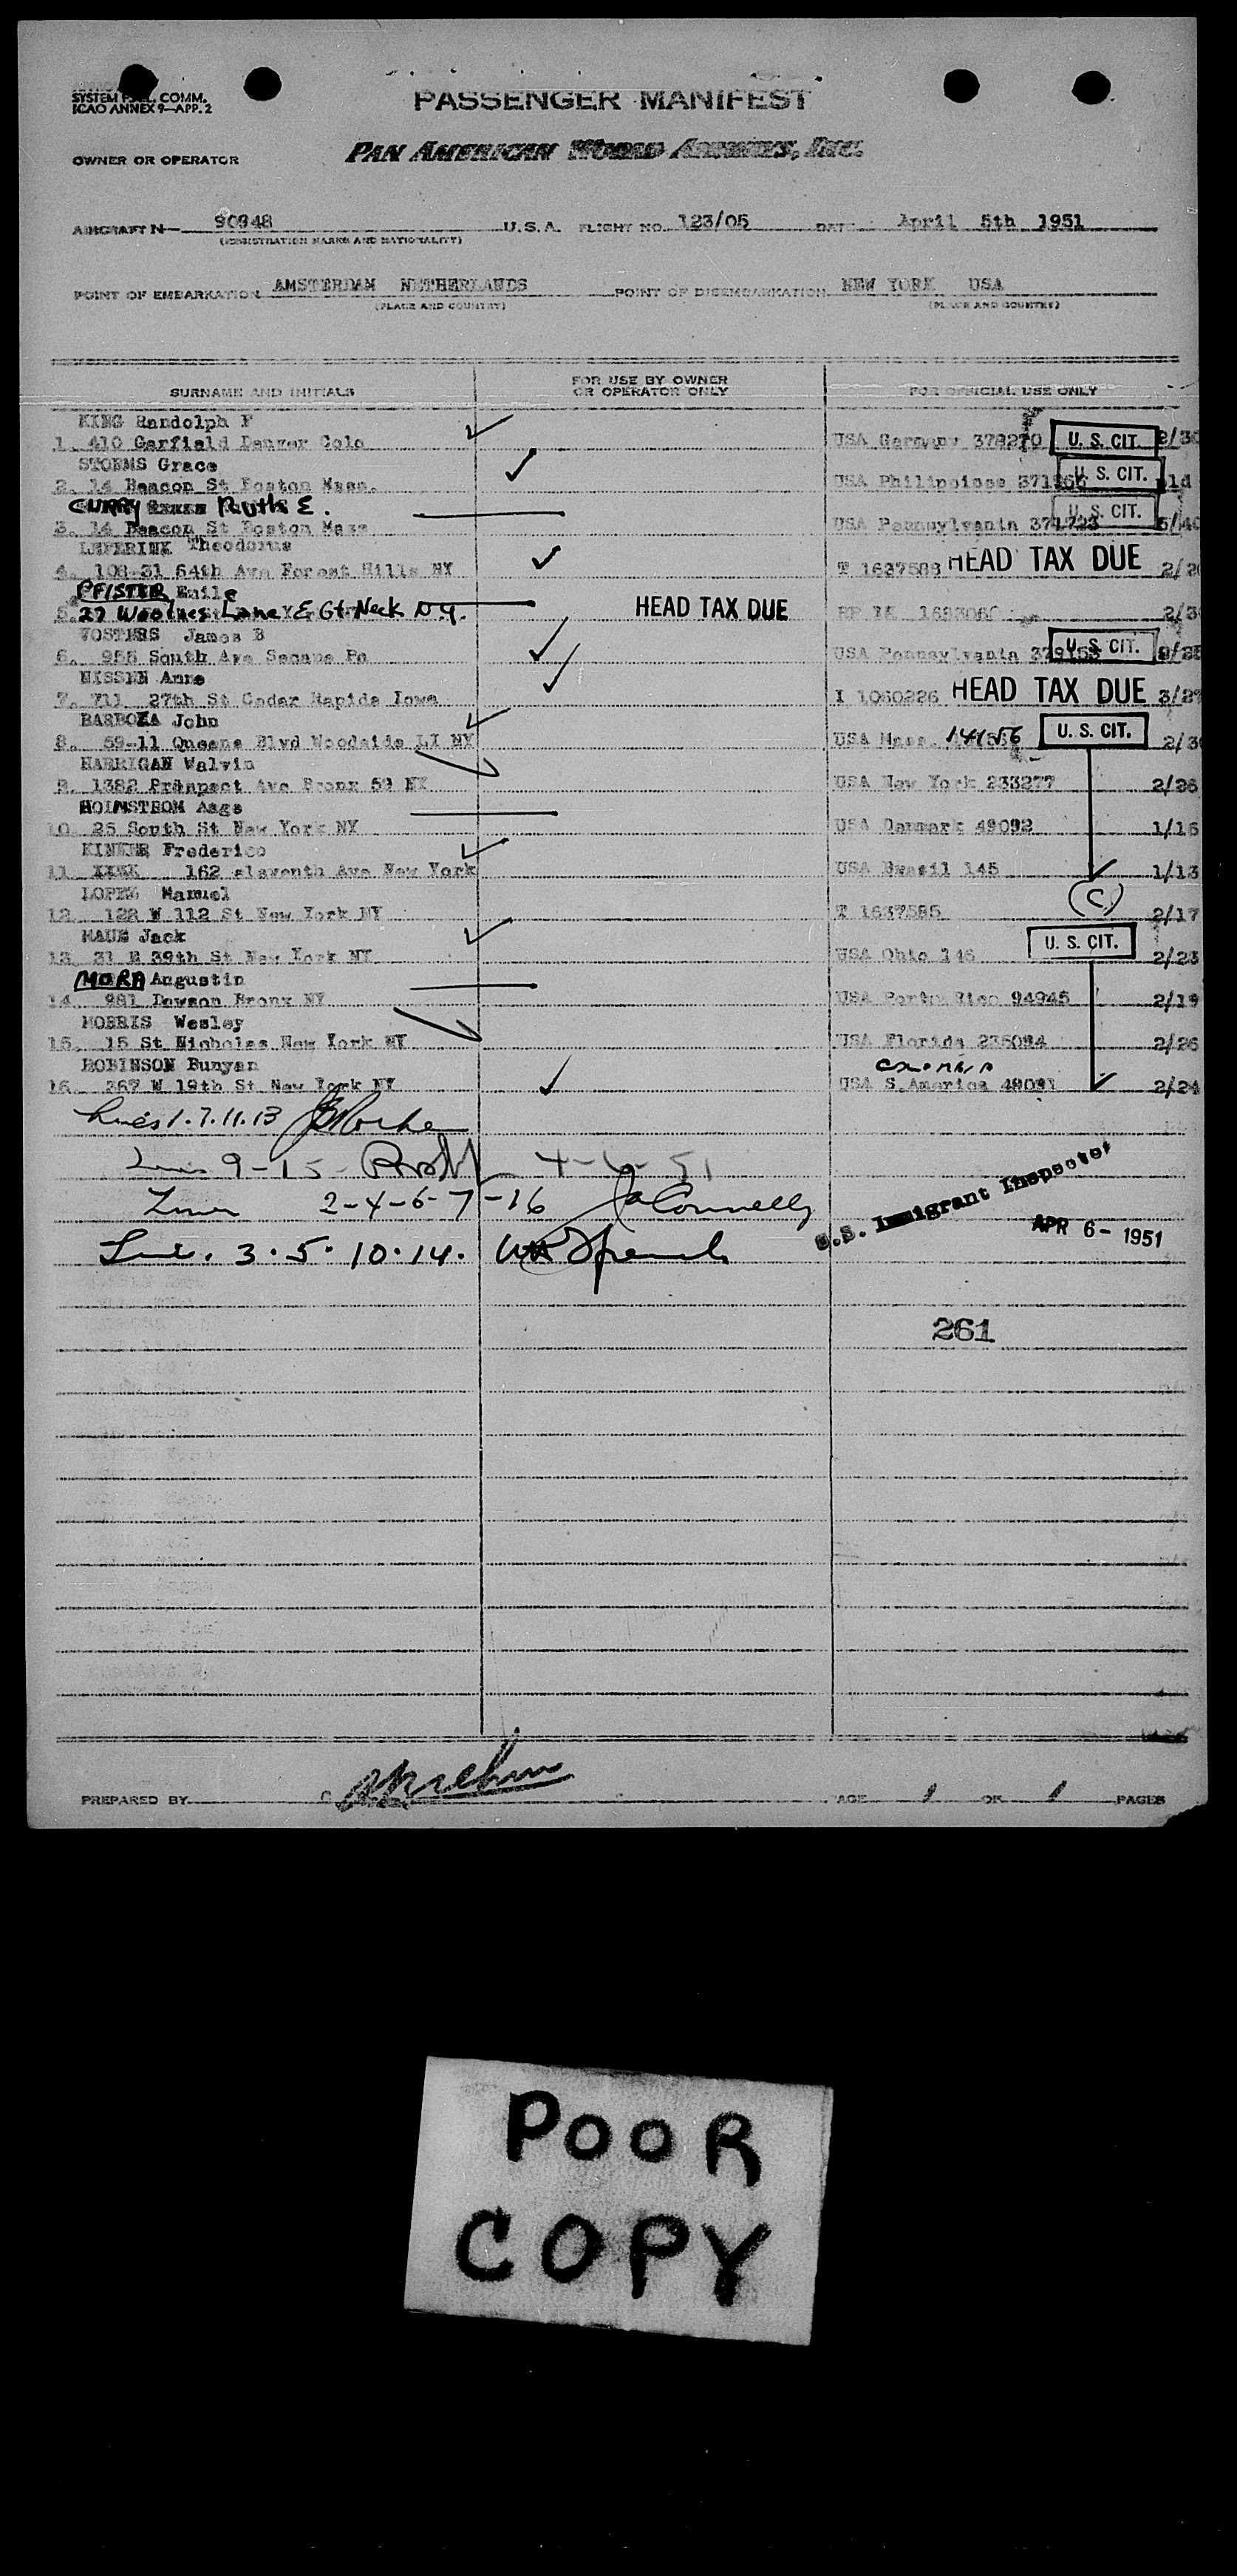 SYSTEM COMM.
ICAO ANNEX 9—APP. 2
PASSENGER MANIFEST
OWNER OR OPERATOR
PAN AMERICAN WORLD AIRWAYS, INC.
AIRCRAFT N— 90948 U.S.A. FLIGHT NO. 123/05 DATE April 5th 1951
(REGISTRATION MARKS AND NATIONALITY)
POINT OF EMBARKATION AMSTERDAM NETHERLANDS POINT OF DISEMBARKATION NEW YORK USA
(PLACE AND COUNTRY) (PLACE AND COUNTRY)
SURNAME AND INITIALS FOR USE BY OWNER OR OPERATOR ONLY FOR OFFICIAL USE ONLY
KING Randolph F
1. 410 Garfield Denver Colo USA Germany 378270 U. S. CIT. 2/30
STORMS Grace
2. 14 Beacon St Boston Mass. USA Philippines U. S. CIT.
CURRY Ruth E.
3. 14 Beacon St Boston Mass USA Pennsylvania 371723 U. S. CIT. 5/40
Theodorus
4. 108-31 64th Ave Forest Hills NY T 1637588 HEAD TAX DUE
PFISTER Emile
5. 27 Lane E Gt Neck N.Y. HEAD TAX DUE
VOSTERS James B
6. 955 South Ave Secane Pa USA Pennsylvania U. S. CIT.
NISSEN Anne
7. 711 27th St Cedar Rapids Iowa I 1060226 HEAD TAX DUE 3/27
BARBOZA John
8. 59-11 Queens Blvd Woodside LI NY USA Mass. 141556 U. S. CIT.
HARRIGAN Walvin
9. 1382 Prospect Ave Bronx 59 NY USA New York 233277 2/26
HOLMSTROM Aage
10. 25 South St New York NY USA Denmark 49092 1/15
Frederico
11 162 eleventh Ave New York USA Brasil 145 1/13
LOPEZ Manuel
12. 122 W 112 St New York NY T 1637585 (C) 2/17
MAUE Jack
13. 31 E 39th St New York NY USA Ohio 146 U. S. CIT. 2/23
MORA Angustin
14. 981 Dawson Bronx NY USA Porto Rico 94945 2/19
MORRIS Wesley
15. 15 St Nicholas New York NY USA Florida 2/26
ROBINSON Bunyan
16. 267 W 19th St New York NY USA S.America 49091 2/24
Lines 1.7.11.13
Lines 9-15 4-6-51
Lines 2-4-6-7-16 Connelly
3.5.10.14.
U.S. Immigrant Inspector
APR 6- 1951
261
PREPARED BY PAGE 1 OF 1 PAGES
POOR
COPY